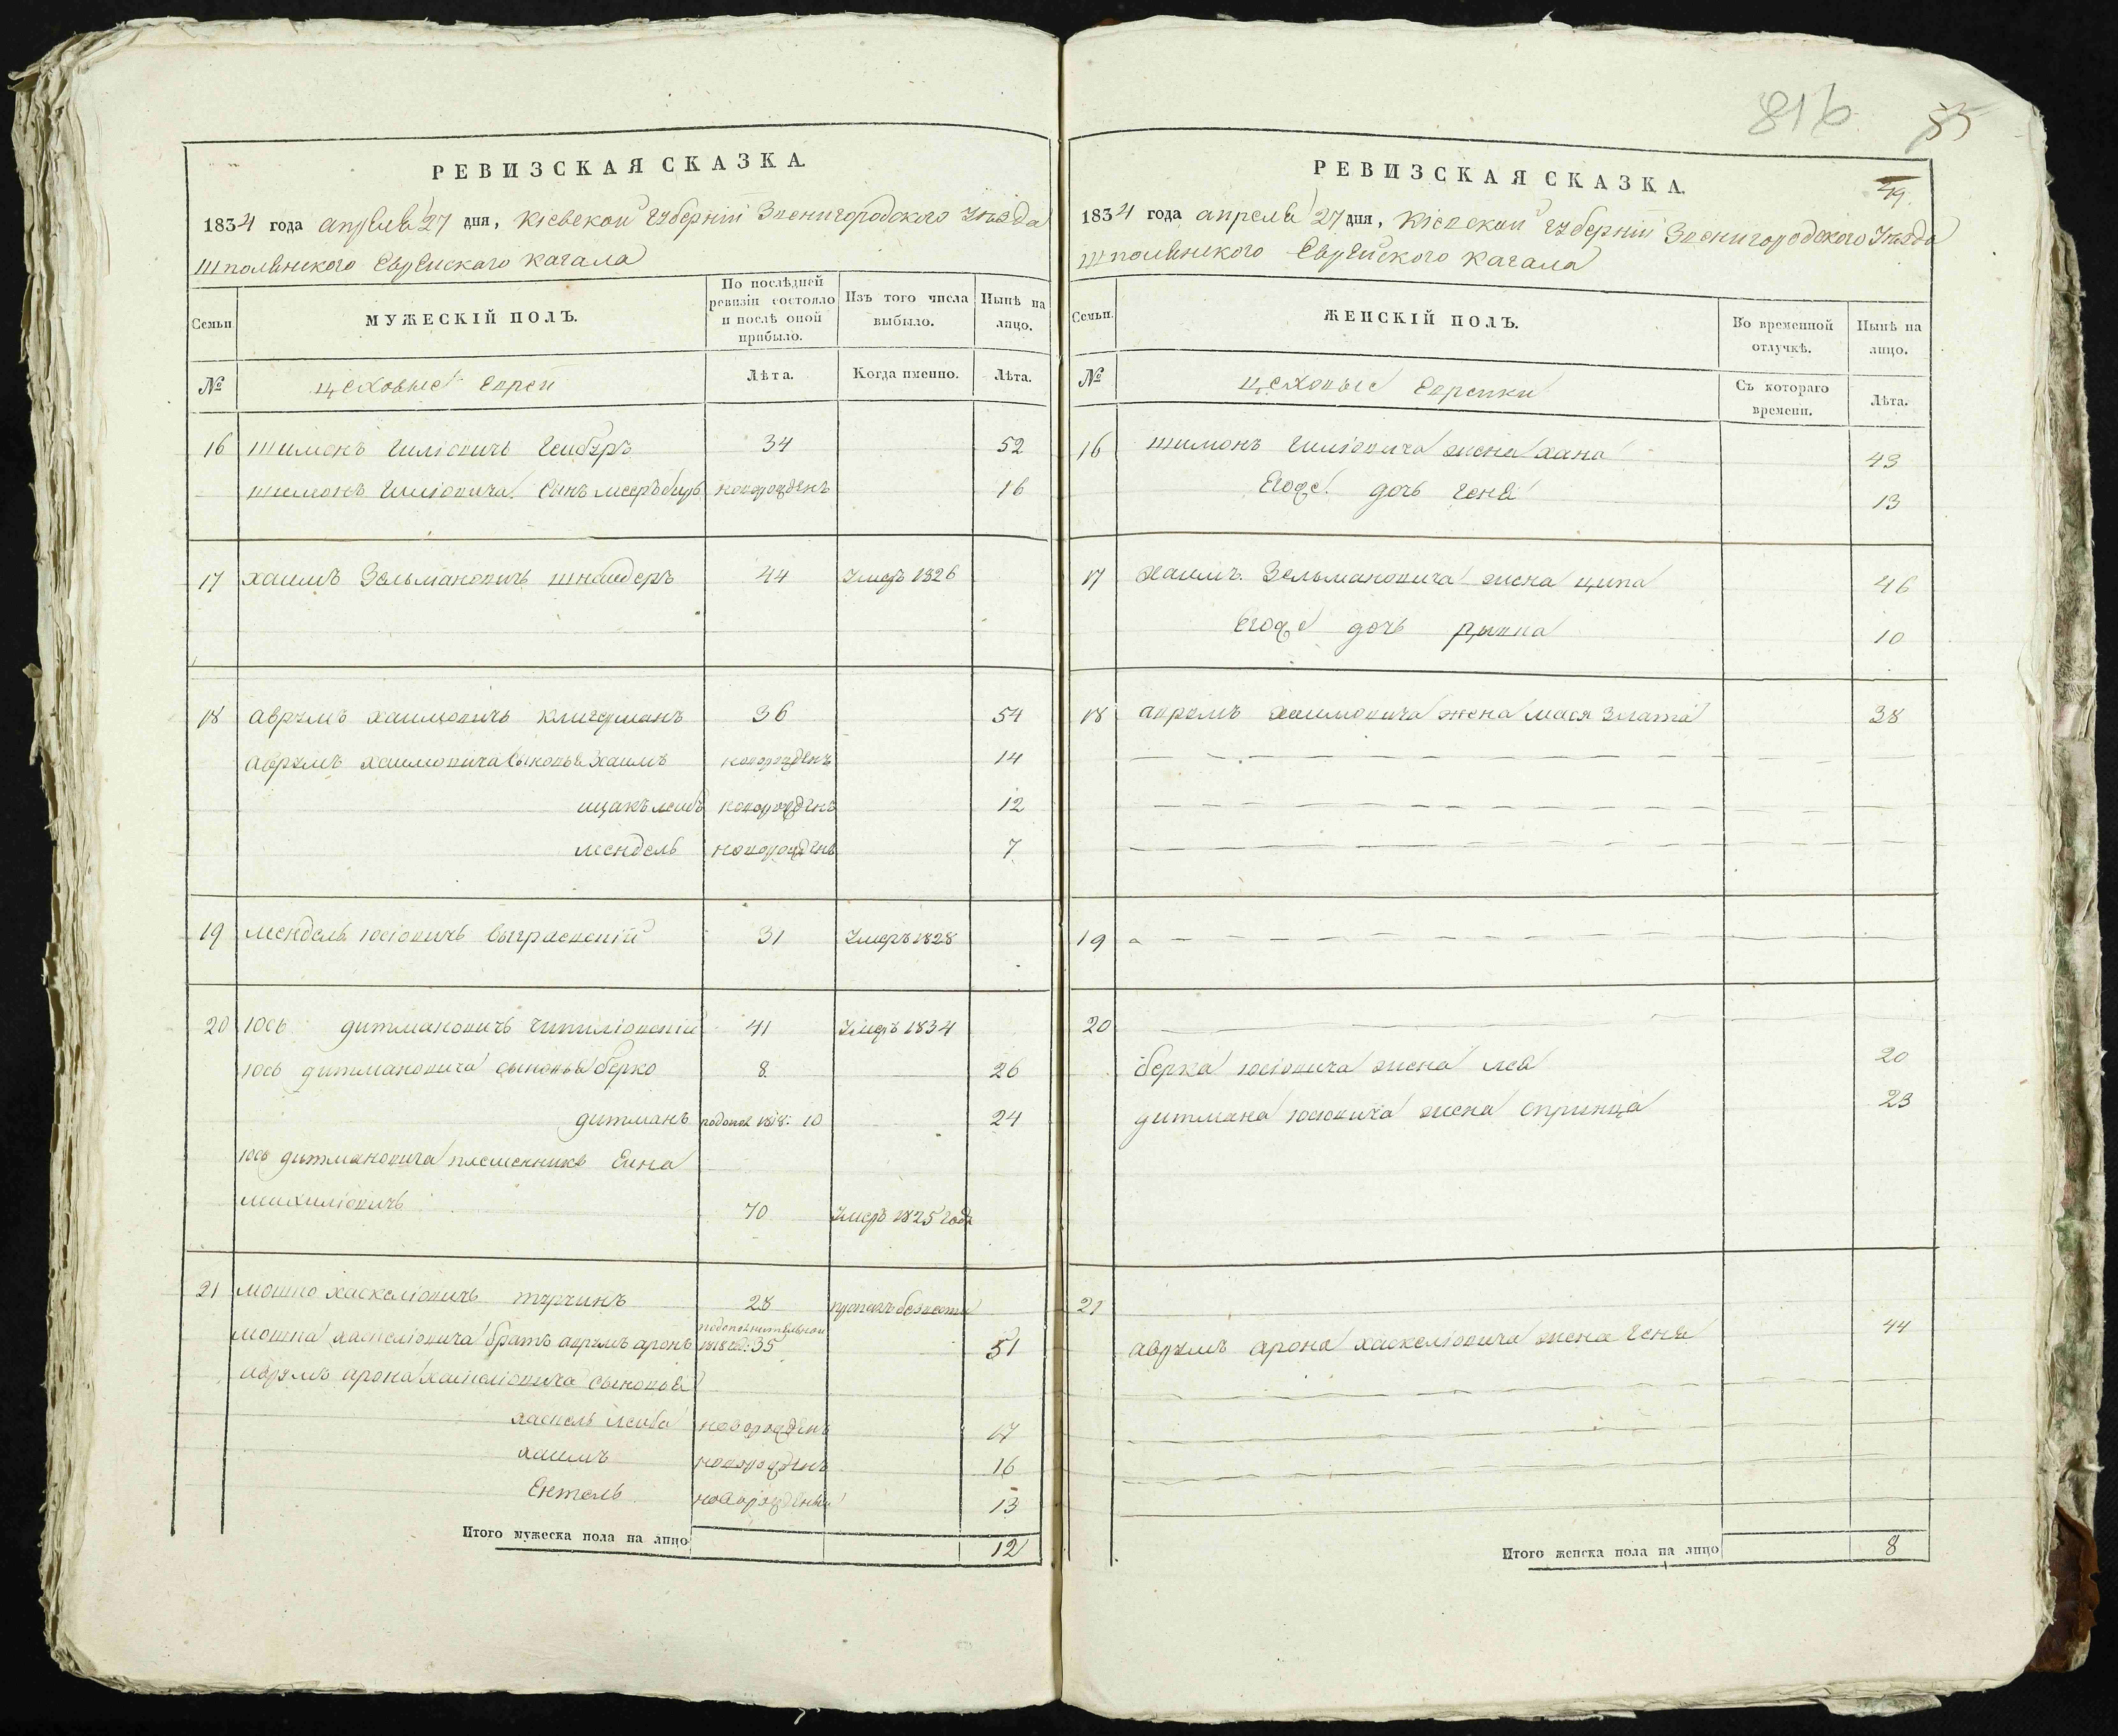 РЕВИЗСКАЯ СКАЗКА.
1834 года апреля 27 дня, Кіевской Губерніи Звенигородского Уезда
Шполянского Еврейскаго Кагала
Семьи
МУЖЕСКІЙ ПОЛЪ.
По послѣдней ревизіи состояло и послѣ оной прибыло.
Изъ того числа выбыло.
Нынѣ на лицо.
№
цеховые Евреи
Лѣта.
Когда именно.
Лѣта.
16 Шимонъ Гиліовичь 34 52
Шимонъ Гиліовича Сынъ новорожденъ 16
17 Хаимъ Зельмановичь Шнайдеръ 44 Умеръ 1826
18 Аврумъ Хаимовичь Клигерманъ 36 54
Аврумъ Хаимовича Сыновья Хаимъ новорожденъ 14
ицакъ лейбъ новорожденъ 12
мендель новорожденъ 7
19 мендель Юсіовичь Выграевскій 31 Умеръ 1828
20 Юсь дитмановичь 41 Умеръ 1834
Юсь дитмановича сыновья берко 8 26
дитманъ 10 24
Юсь дитмановича племенникъ
михиліовичь 70 Умеръ 1825 года
21 мошко хаскеліовичь турчинъ 28 пропалъ безвести
мошка хаскеліовича братъ аврумъ аронъ 35 51
аврумъ арона хаскеліовича сыновья
хаскель лейба новорожденъ 17
хаимъ новорожденъ 16
Ентель новорожденъ 13
Итого мужеска пола на лицо 12
816
85
49.
РЕВИЗСКАЯ СКАЗКА.
1834 года апреля 27 дня, Кіевской Губерніи Звенигородского Уезда
Шполянского Еврейского Кагала
Семьи.
ЖЕНСКІЙ ПОЛЪ.
Во временной отлучкѣ.
Нынѣ на лицо.
№
цеховые Еврейки
Съ котораго времени.
Лѣта.
16 Шимонъ Гиліовича жена хана 43
Егоже дочь геня 13
17 Хаимъ Зельмановича жена ципа 46
Егоже дочь 10
18 аврумъ Хаимовича жена мася Злата 38
19
20
берка Юсіовича жена лея 20
дитмана Юсіовича жена спринца 23
21
аврумъ арона хаскеліовича жена геня 44
Итого женска пола на лицо 8